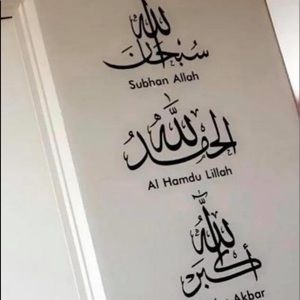 سبحان الله
Subhan Allah
الحمد لله
Al Hamdu Lillah
الله أكبر
Akbar